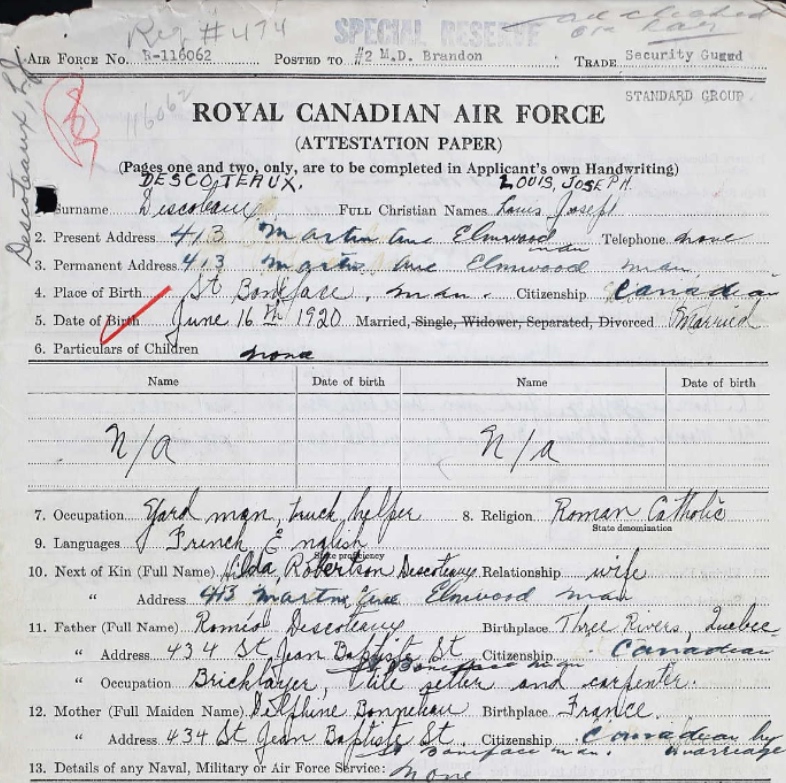 Reg #474 SPECIAL RESERVE
AIR FORCE NO. R-116062 POSTED TO #2 M.D. Brandon TRADE Security Guard
STANDARD GROUP.
116062
Descoteaux, L.J.
ROYAL CANADIAN AIR FORCE
(ATTESTATION PAPER)
(Pages one and two, only, are to be completed in Applicant's own Handwriting)
DESCOTEAUX. LOUIS, JOSEPH.
Surname Descoteaux FULL Christian Names Louis Joseph
2. Present Address 413 Martin Ave Elmwood man Telephone none
3. Permanent Address 413 Martin Ave Elmwood man
4. Place of Birth St Boniface, man. Citizenship Canadian
5. Date of Birth June 16th 1920 Married, Single, Widower, Separated, Divorced Married
6. Particulars of Children none
Name Date of birth Name Date of birth
N/A N/A
7. Occupation Yard man, truck helper 8. Religion Roman Catholic
State denomination
9. Languages French, English
State proficiency
10. Next of Kin (Full Name) Hilda Robertson Descoteaux Relationship wife
" Address 413 Martin Ave Elmwood man
11. Father (Full Name) Roméo Descoteaux Birthplace Three Rivers, Quebec
" Address 434 St Jean Baptiste St Citizenship Canadian
St Boniface man.
" Occupation Bricklayer, tile setter and carpenter.
12. Mother (Full Maiden Name) Delphine Bonneteau Birthplace France.
" Address 434 St Jean Baptiste St. Citizenship Canadian by marriage
St Boniface man.
13. Details of any Naval, Military or Air Force Service: none